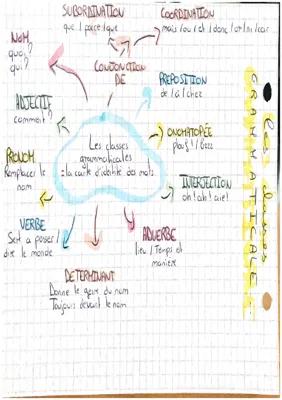 les classes
GRAMMATICALE
SUBORDINATION
que / parce / que
COORDINATION
mais / ou / et / donc / or / ni / car
CONJONCTION
DE
NOM
quoi?
qui?
PREPOSITION
de / à / chez
ADJECTIF
comment?
ONOMATOPÉE
plouf! / Bzzz
Les classes
grammaticales
= la carte d'identité des mots
PRONOM
Remplacer le
nom
INTERJECTION
oh! ah! aïe!
VERBE
Sert a poser /
dire le monde
ADVERBE
lieu / Temps et
manière
DETERMINANT
Donne le genre du nom
Toujours devant le nom